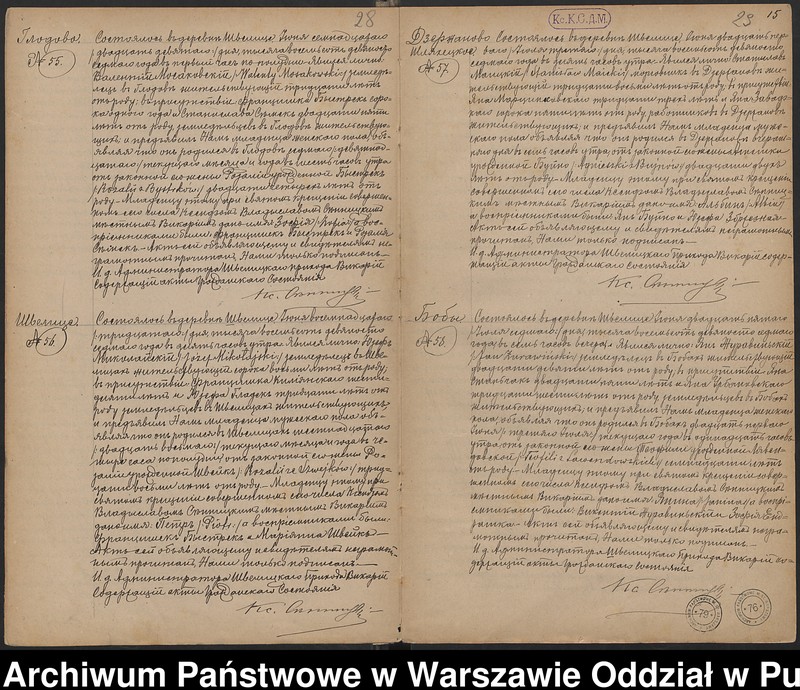 28
Глодово.
№ 55.
Состоялось въ деревнѣ Швелице Іюня семнадцатаго
/двадцать девятаго/ дня, тысяча восемьсотъ девяносто
седьмаго года въ первый часъ по полудни. Явился лично
Валентій Мосаковскій /Walenty Mosakowski/ земледѣ-
лецъ въ Глодовѣ жительствующій тридцати лѣтъ
отъ роду; въ присутствіи Францишка Быстрекъ соро-
ка одного года и Станислава двадцати пяти
лѣтъ отъ роду земледѣльцевъ въ Глодовѣ жительствую-
щихъ, и предъявилъ Намъ младенца женскаго пола, объ-
являя что она родилась въ Глодовѣ /девятнад-
цатаго/ текущаго мѣсяца и года въ шесть часовъ утра
отъ законной его жены Розаліи урожденной Быстрекъ
/Rozalij z Bystrków/ двадцати четырехъ лѣтъ отъ
роду. Младенцу этому при святомъ крещеніи совершен-
номъ сего числа Ксендзомъ Владиславомъ
мѣстнымъ Викаріемъ дано имя Зофія /Zofia/ а вос-
пріемниками были Францишекъ Быстрекъ и
Актъ сей объявляющему и свидѣтелямъ не-
грамотнымъ прочитанъ, Нами только подписанъ.
И. д. Администратора Швелицкаго прихода Викарій
Содержащій акты Гражданскаго Состоянія
Кс.
Швелице
№ 56.
Состоялось въ деревнѣ Швелице Іюня восемнадцатаго
/тридцатаго/ дня, тысяча восемьсотъ девяносто
года въ десять часовъ утра. Явился лично Іозефъ
Миколайскій /Józef Mikołajski/ земледѣлецъ въ Шве-
лицахъ жительствующій сорока восьми лѣтъ отъ роду;
въ присутствіи Францишка шести-
десяти лѣтъ и Іозефа Гладекъ тридцати лѣтъ отъ
роду земледѣльцевъ въ Швелицахъ жительствующихъ,
и предъявилъ Намъ младенца мужескаго пола, объ-
являя что онъ родился въ Швелицахъ шестнадцатаго
/двадцать восьмаго/ текущаго мѣсяца и года въ че-
тыре часа по полудни отъ законной его жены Ро-
заліи урожденной Швейкъ /Rozalij ze Szwejków/ трид-
цати восьми лѣтъ отъ роду. Младенцу этому при
святомъ крещеніи совершенномъ сего числа Ксендзомъ
Владиславомъ мѣстнымъ Викаріемъ
дано имя Петръ /Piotr/, а воспріемниками были
Францишекъ Быстрекъ и Маріанна Швейкъ.
Актъ сей объявляющему и свидѣтелямъ неграмот-
нымъ прочитанъ Нами только подписанъ.
И. д. Администратора Швелицкаго Прихода Викарій
Содержащій акты Гражданскаго Состоянія
Кс.
Кс.К.С.Д.М.
29 15
Дзержаново
Шляхецкое
№ 57.
Состоялось въ деревнѣ Швелице, Іюня двадцать пер-
ваго /Іюля третьяго/ дня, тысяча восемьсотъ девяносто
седьмаго года въ десять часовъ утра. Явился лично Станиславъ
Маицкій /Stanisław Maicki/ въ Дзержановѣ жи-
тельствующій тридцати восьми лѣтъ отъ роду; въ присутствіи
Яна Марцинковскаго тридцати трехъ лѣтъ и Яна
сорока пяти лѣтъ отъ роду, работниковъ въ Дзержановѣ
жительствующихъ, и предъявилъ Намъ младенца муже-
скаго пола объявляя что онъ родился въ Дзержановѣ
въ семь часовъ утра, отъ законной его жены
урожденной двадцати двухъ
лѣтъ отъ роду. Младенцу этому при святомъ крещеніи
совершенномъ сего числа Ксендзомъ Владиславомъ
мѣстнымъ Викаріемъ дано имя Альбинъ /Albin/
а воспріемниками были Янъ и Іозефа
Актъ сей объявляющему и свидѣтелямъ неграмотнымъ
прочитанъ, Нами только подписанъ.
И. д. Администратора Швелицкаго Прихода Викарій содер-
жащій акты Гражданскаго Состоянія
Кс.
Бобы
№ 58.
Состоялось въ деревнѣ Швелице, Іюня двадцать пятаго
/Іюля седьмаго/ дня, тысяча восемьсотъ девяносто седьмаго
года, въ семь часовъ вечера. Явился лично Янъ Журавинскій
/Jan Żurawiński/ земледѣлецъ въ Бобахъ жительствующій
двадцати девяти лѣтъ отъ роду; въ присутствіи Яна
двадцати пяти лѣтъ и Яна Урбановскаго
тридцати шести лѣтъ отъ роду земледѣльцевъ въ Бобахъ
жительствующихъ, и предъявилъ Намъ младенца женскаго
пола, объявляя что она родилась въ Бобахъ двадцать перваго
Іюня /третьяго Іюля/ текущаго года въ одинадцать часовъ
утра отъ законной его жены Теофили урожденной
двадцати лѣтъ
отъ роду. Младенцу этому при святомъ крещеніи совер-
шенномъ сего числа Ксендзомъ Владиславомъ
мѣстнымъ Викаріемъ дано имя Анна /Anna/ а воспрі-
емниками были Викентій Журавинскій и Зофія
Актъ сей объявляющему и свидѣтелямъ негра-
мотнымъ прочитанъ, Нами только подписанъ.
И. д. Администратора Швелицкаго Прихода Викарій со-
держащій акты Гражданскаго Состоянія
Кс.
79
76
Archiwum Państwowe w Warszawie Oddział w Pu